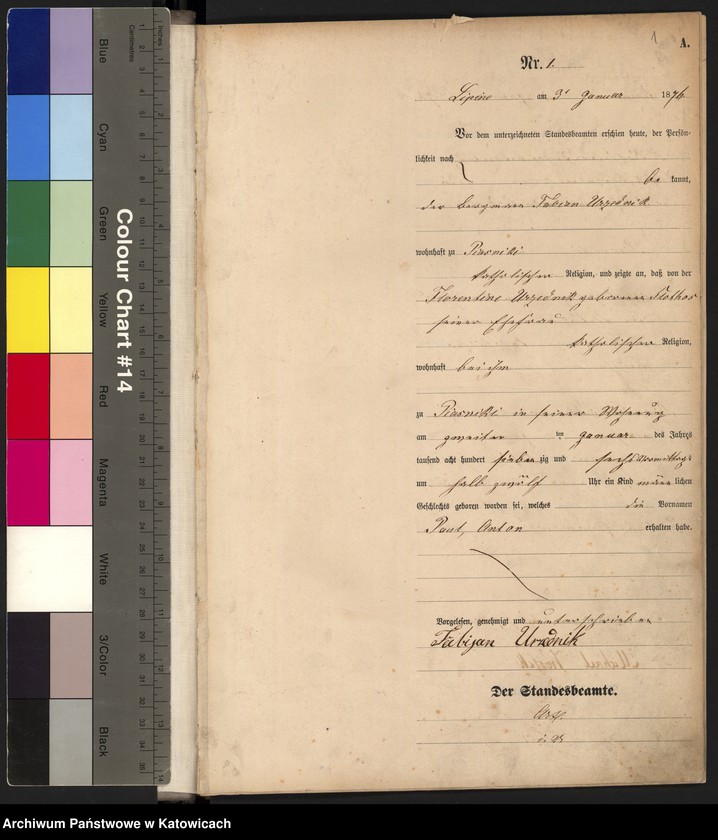 Blue
Cyan
Green
Yellow
Red
Magenta
White
3/Color
Black
Colour Chart #14
Centimetres
Inches
1
A.
Nr. 1.
Lipine am 3t Januar 1876.
Vor dem unterzeichneten Standesbeamten erschien heute, der Persön-
lichkeit nach
be kannt,
der Bergmann Fabian Urzednik
wohnhaft zu Piasniki
katholischer Religion, und zeigte an, daß von der
Florentine Urzednik geborenen
seiner Ehefrau
katholischer Religion,
wohnhaft bei ihm
zu Piasniki in seiner Wohnung
am zweiten im Januar des Jahres
tausend acht hundert sieben zig und sechs Vormittags
um halb zwölf Uhr ein Kind männ lichen
Geschlechts geboren worden sei, welches die Vornamen
Paul, Anton erhalten habe.
Vorgelesen, genehmigt und unterschrieben
Fabijan Urzednik
Der Standesbeamte.
Archiwum Państwowe w Katowicach